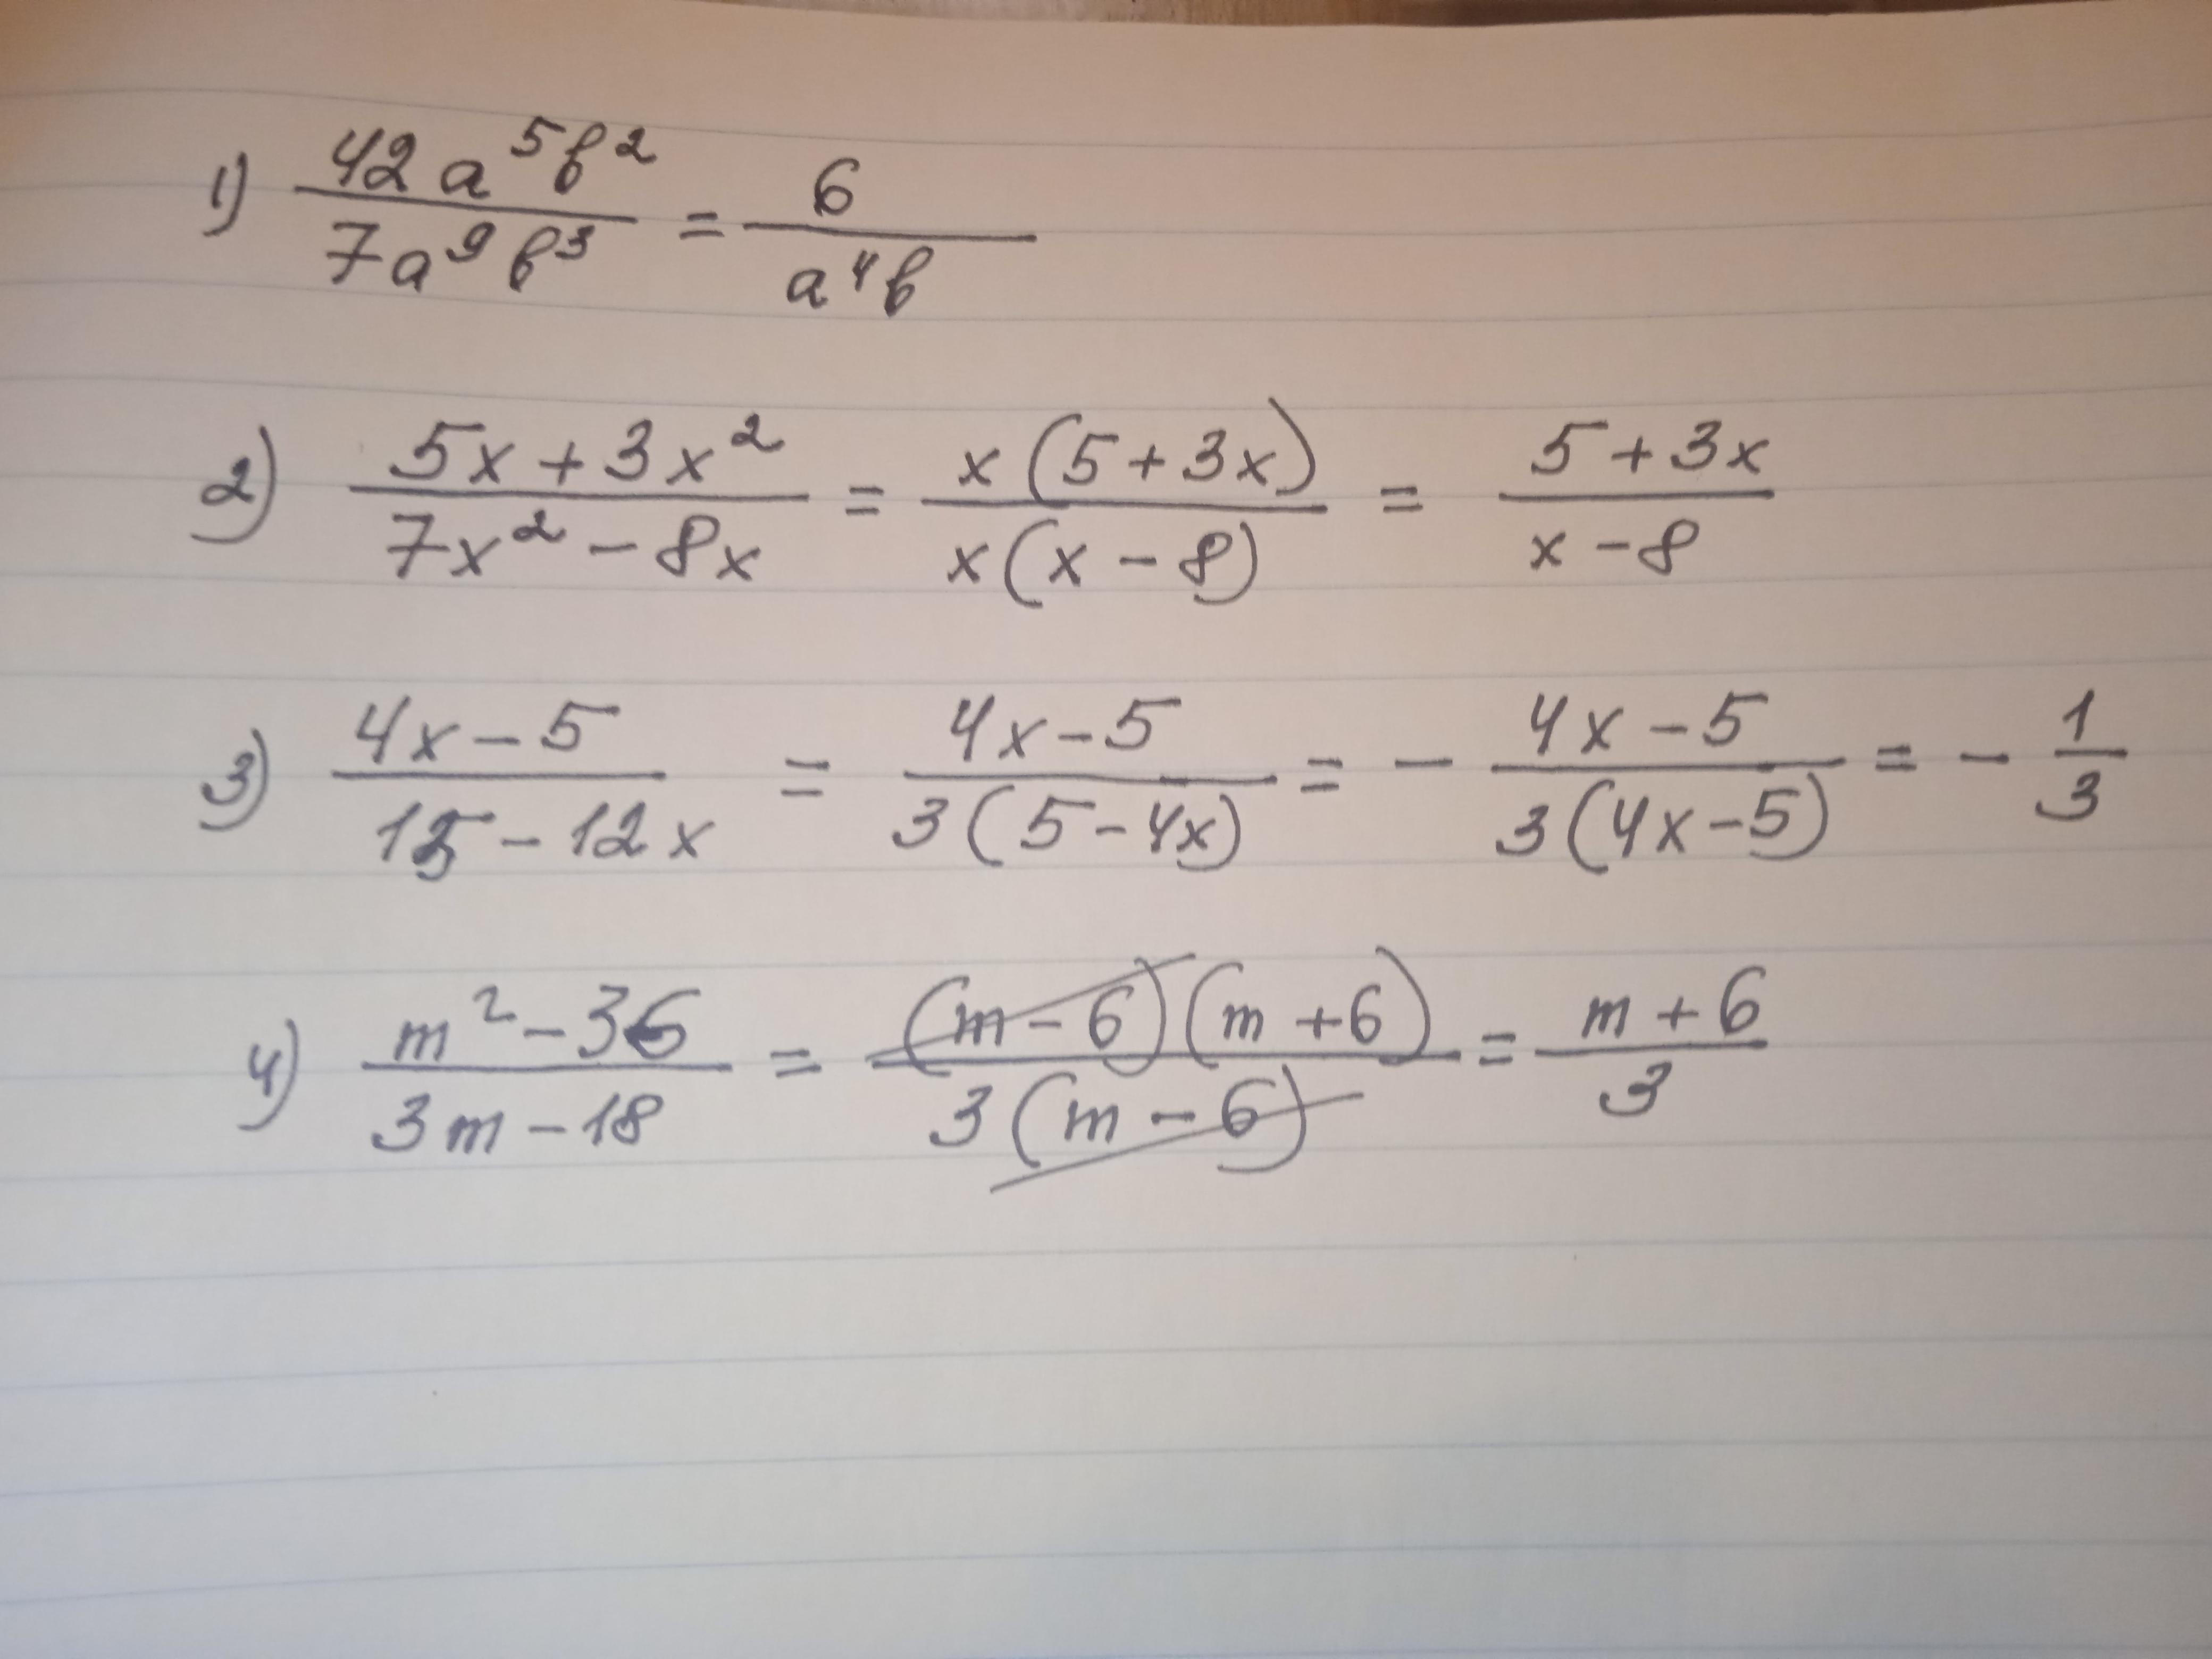 1) 42a⁵b²/7a⁹b³ = 6/a⁴b
2) 5x+3x²/7x²-8x = x(5+3x)/x(x-8) = 5+3x/x-8
3) 4x-5/15-12x = 4x-5/3(5-4x) = - 4x-5/3(4x-5) = - 1/3
4) m²-36/3m-18 = (m-6)(m+6)/3(m-6) = m+6/3